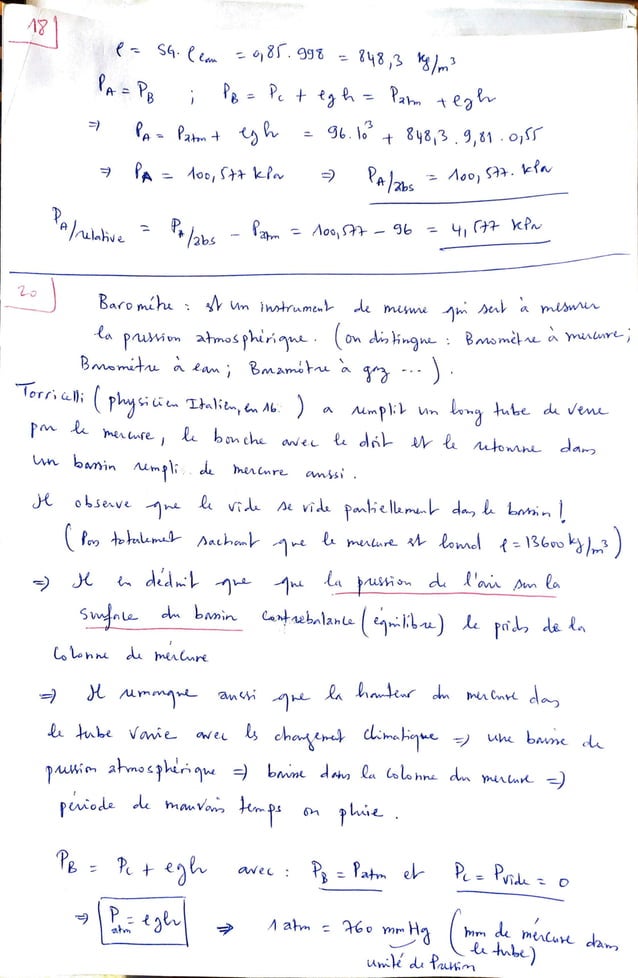 18
ρ = SG. ρeau = 0,85. 998 = 848,3 kg/m³
PA = PB ; PB = Pc + ρgh = Patm + ρgh
⇒ PA = Patm + ρgh = 96.10³ + 848,3. 9,81. 0,55
⇒ PA = 100,577 kPa ⇒ PA/abs = 100,577. kPa
PA/relative = PA/abs - Patm = 100,577 - 96 = 4,577 kPa
20
Baromètre : est un instrument de mesure qui sert à mesurer
la pression atmosphérique. (on distingue : Baromètre à mercure;
Baromètre à eau; Baromètre à gaz ...).
Torricelli (physicien Italien, en 16. ) a remplit un long tube de verre
par le mercure, le bouche avec le doit et le retourne dans
un bassin rempli de mercure aussi.
Il observe que le vide se vide partiellement das le bassin!
(Pas totalemet sachant que le mercure est lourd ρ = 13600 kg/m³)
⇒ Il en déduit que que la pression de l'air sur la
surface du bassin contrebalance (équilibre) le poids de la
colonne de mércure
⇒ Il remarque aussi que la hauteur du mercure das
le tube varie avec ls changemet climatique ⇒ une baisse de
pression atmosphérique ⇒ baisse dans la colonne du mercure ⇒
période de mauvais temps ou pluie.
PB = Pc + ρgh avec : PB = Patm et Pc = Pvide = 0
⇒ Patm = ρgh ⇒ 1 atm = 760 mmHg (mm de mércure dans
le tube)
unité de Pression